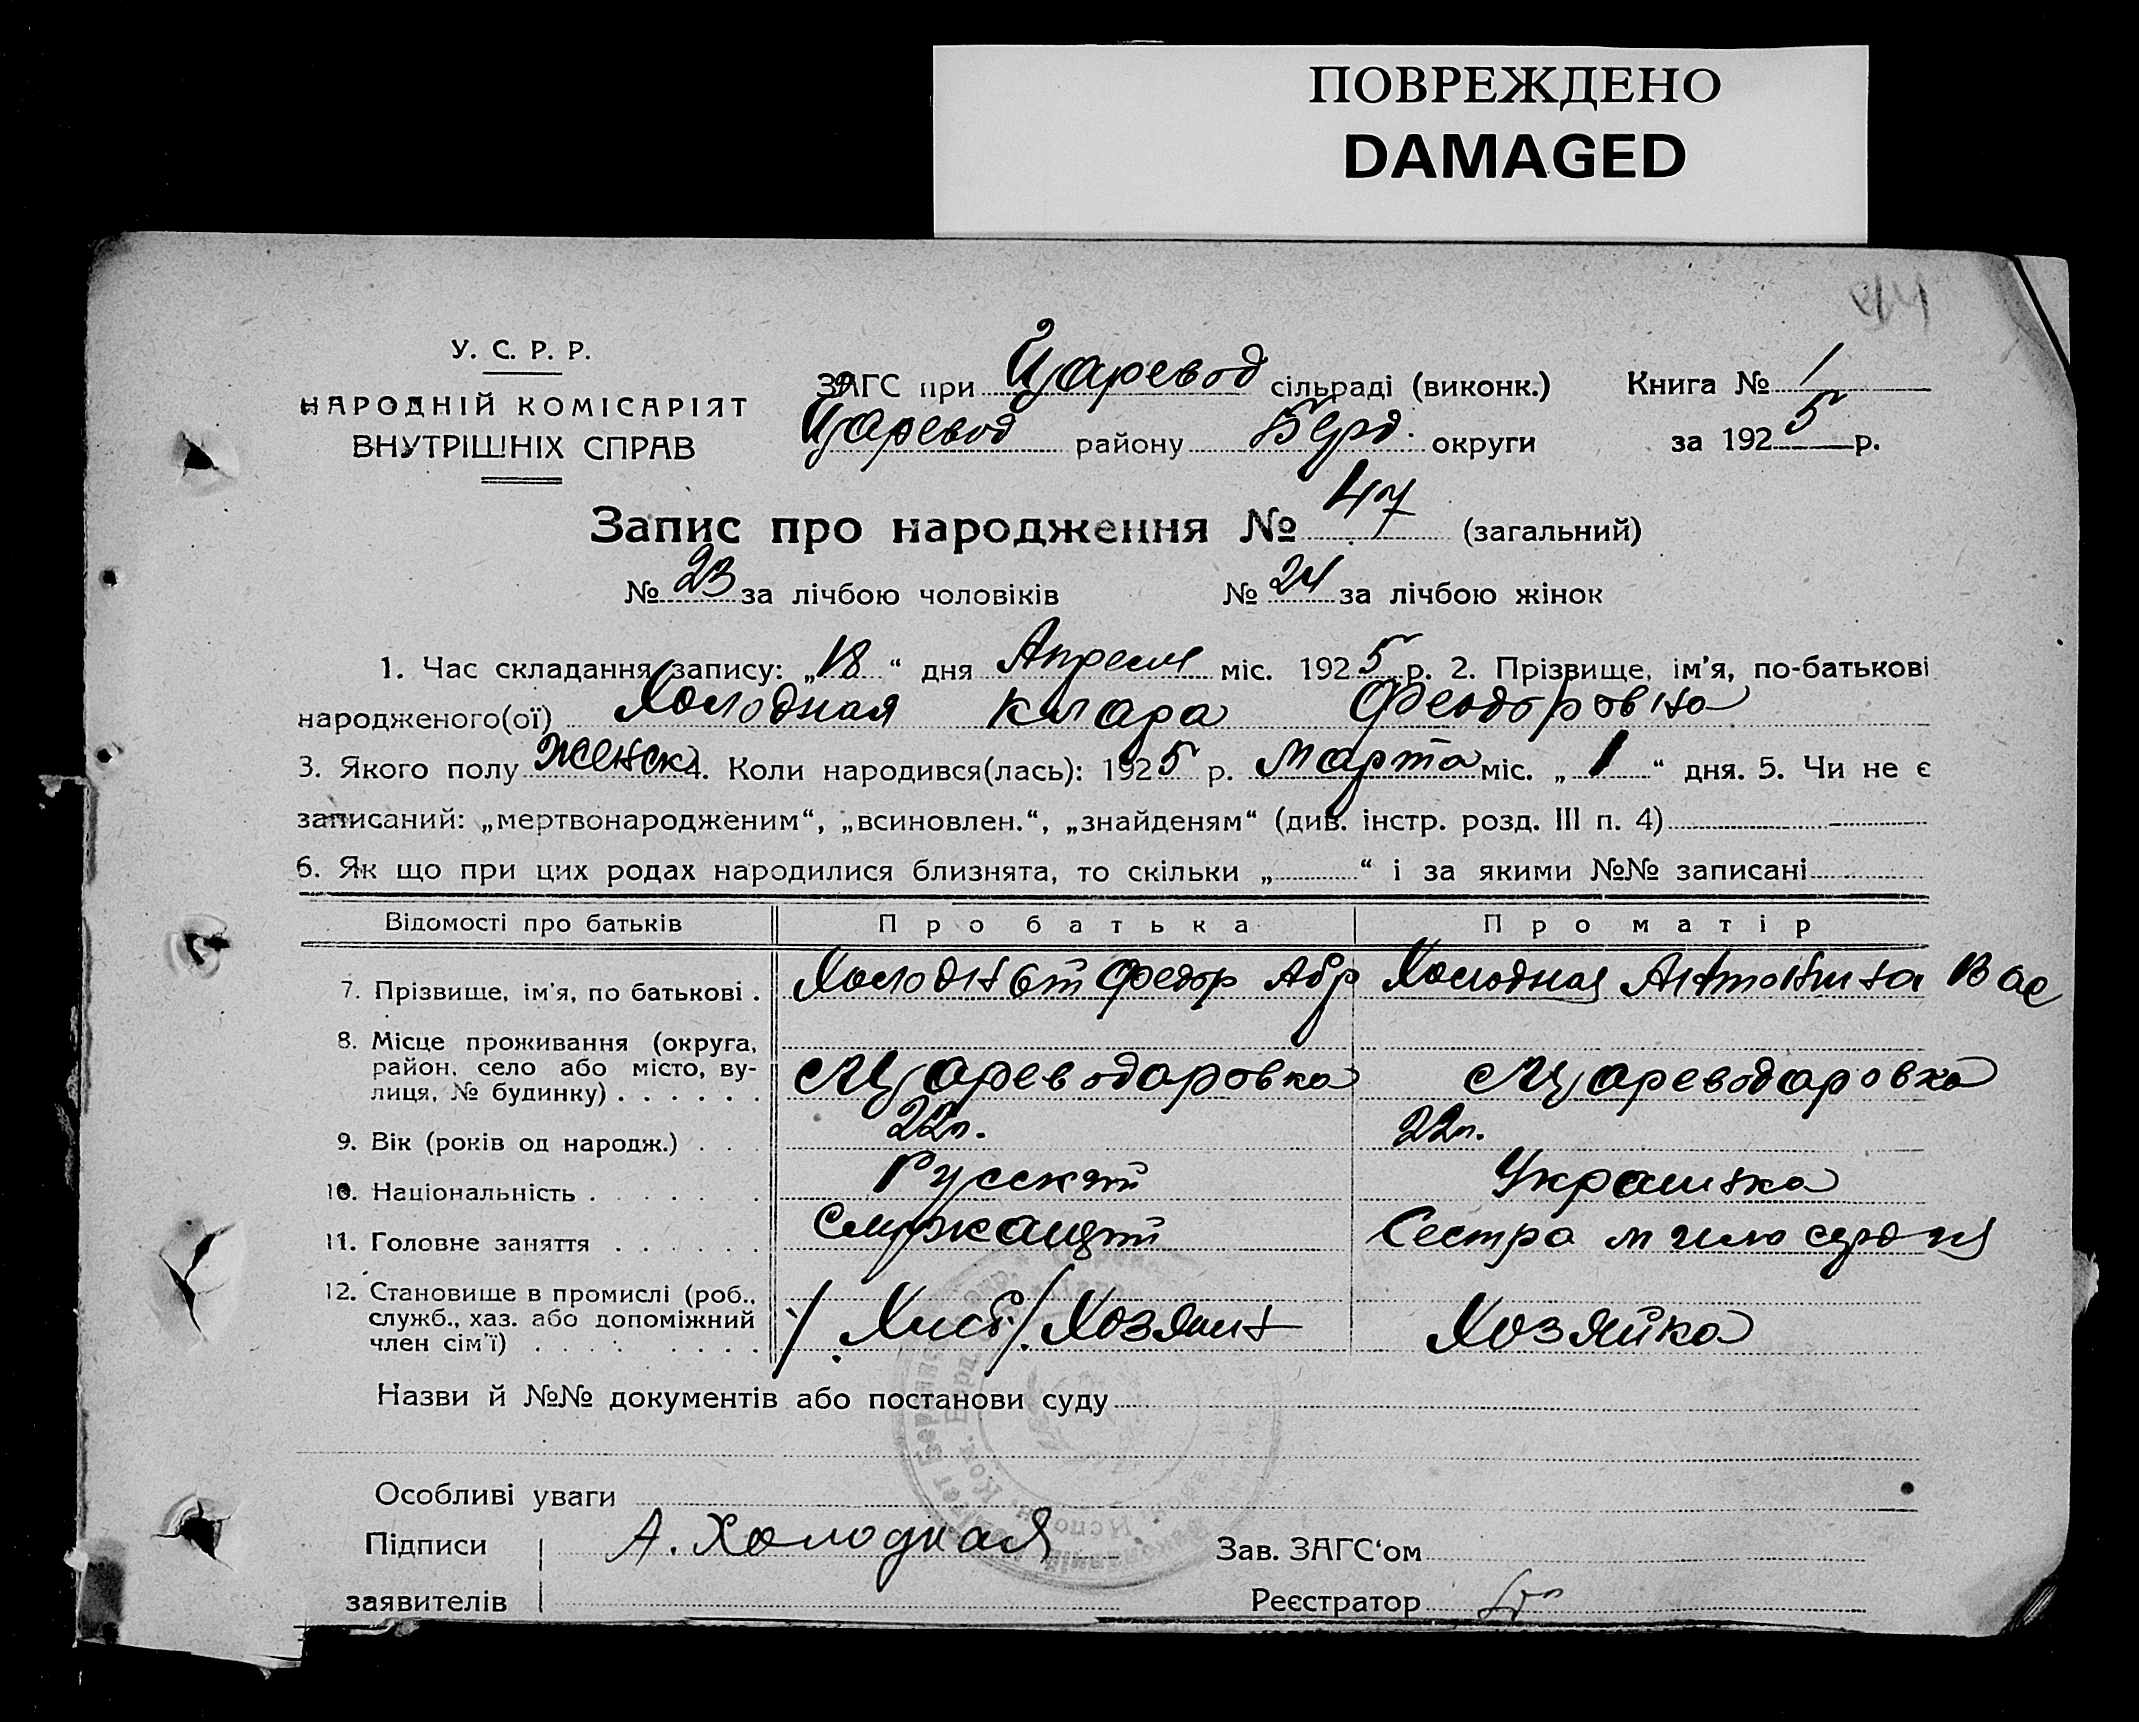 ПОВРЕЖДЕНО
DAMAGED
У. С. Р. Р.
НАРОДНІЙ КОМІСАРІЯТ
ВНУТРІШНІХ СПРАВ
ЗАГС при Царевод сільраді (виконк.) Книга № 1
Царевод району Берд. округи за 1925 р.
Запис про народження № 47 (загальний)
№ 23 за лічбою чоловіків № 24 за лічбою жінок
1. Час складання запису: „18“ дня Апреля міс. 1925 р. 2. Прізвище, ім'я, по-батькові
народженого(ої) Холодная Клара Феодоровна
3. Якого полу Женск 4. Коли народився(лась): 1925 р. Марта міс. „1“ дня. 5. Чи не є
записаний: „мертвонародженим“, „всиновлен.“, „знайденям“ (див. інстр. розд. III п. 4)
6. Як що при цих родах народилися близнята, то скільки „ “ і за якими №№ записані
Відомості про батьків Про батька Про матір
7. Прізвище, ім'я, по батькові . Холодный Федор Абр Холодная Антонина Вас
8. Місце проживання (округа,
район, село або місто, ву-
лиця, № будинку) . . . . . . с Цареводаровка с Цареводаровка
9. Вік (років од народж.) . . . 22л. 22л.
10. Національність . . . . . . Русский Украинка
11. Головне заняття . . . . . . Служащий Сестра милосердия
12. Становище в промислі (роб.,
служб., хаз. або допоміжний
член сім'ї) . . . . . . . . Хозяин Хозяйка
Назви й №№ документів або постанови суду
Особливі уваги
Підписи А. Холодная Зав. ЗАГС'ом
заявителів Реєстратор